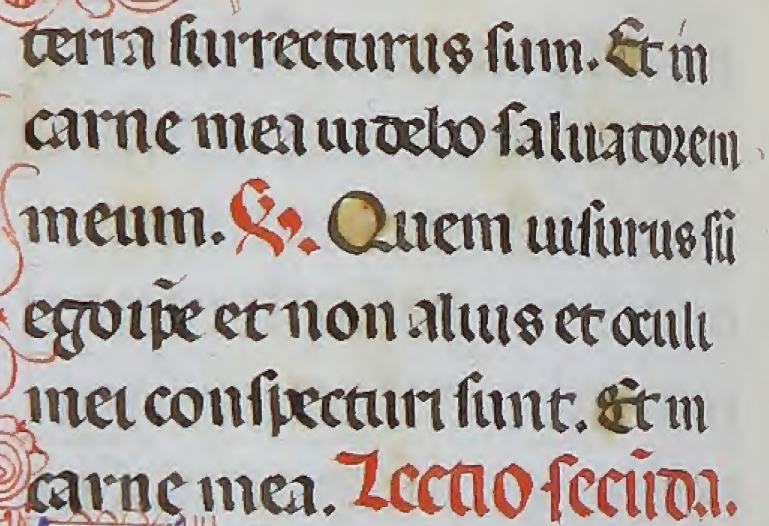 terra surrecturus sum. Et in
carne mea uidebo saluatorem
meum. ℣. Quem uisurus sũ
ego ip̃e et non alius et oculi
mei conspecturi sunt. Et in
carne mea. Lectio secũda.